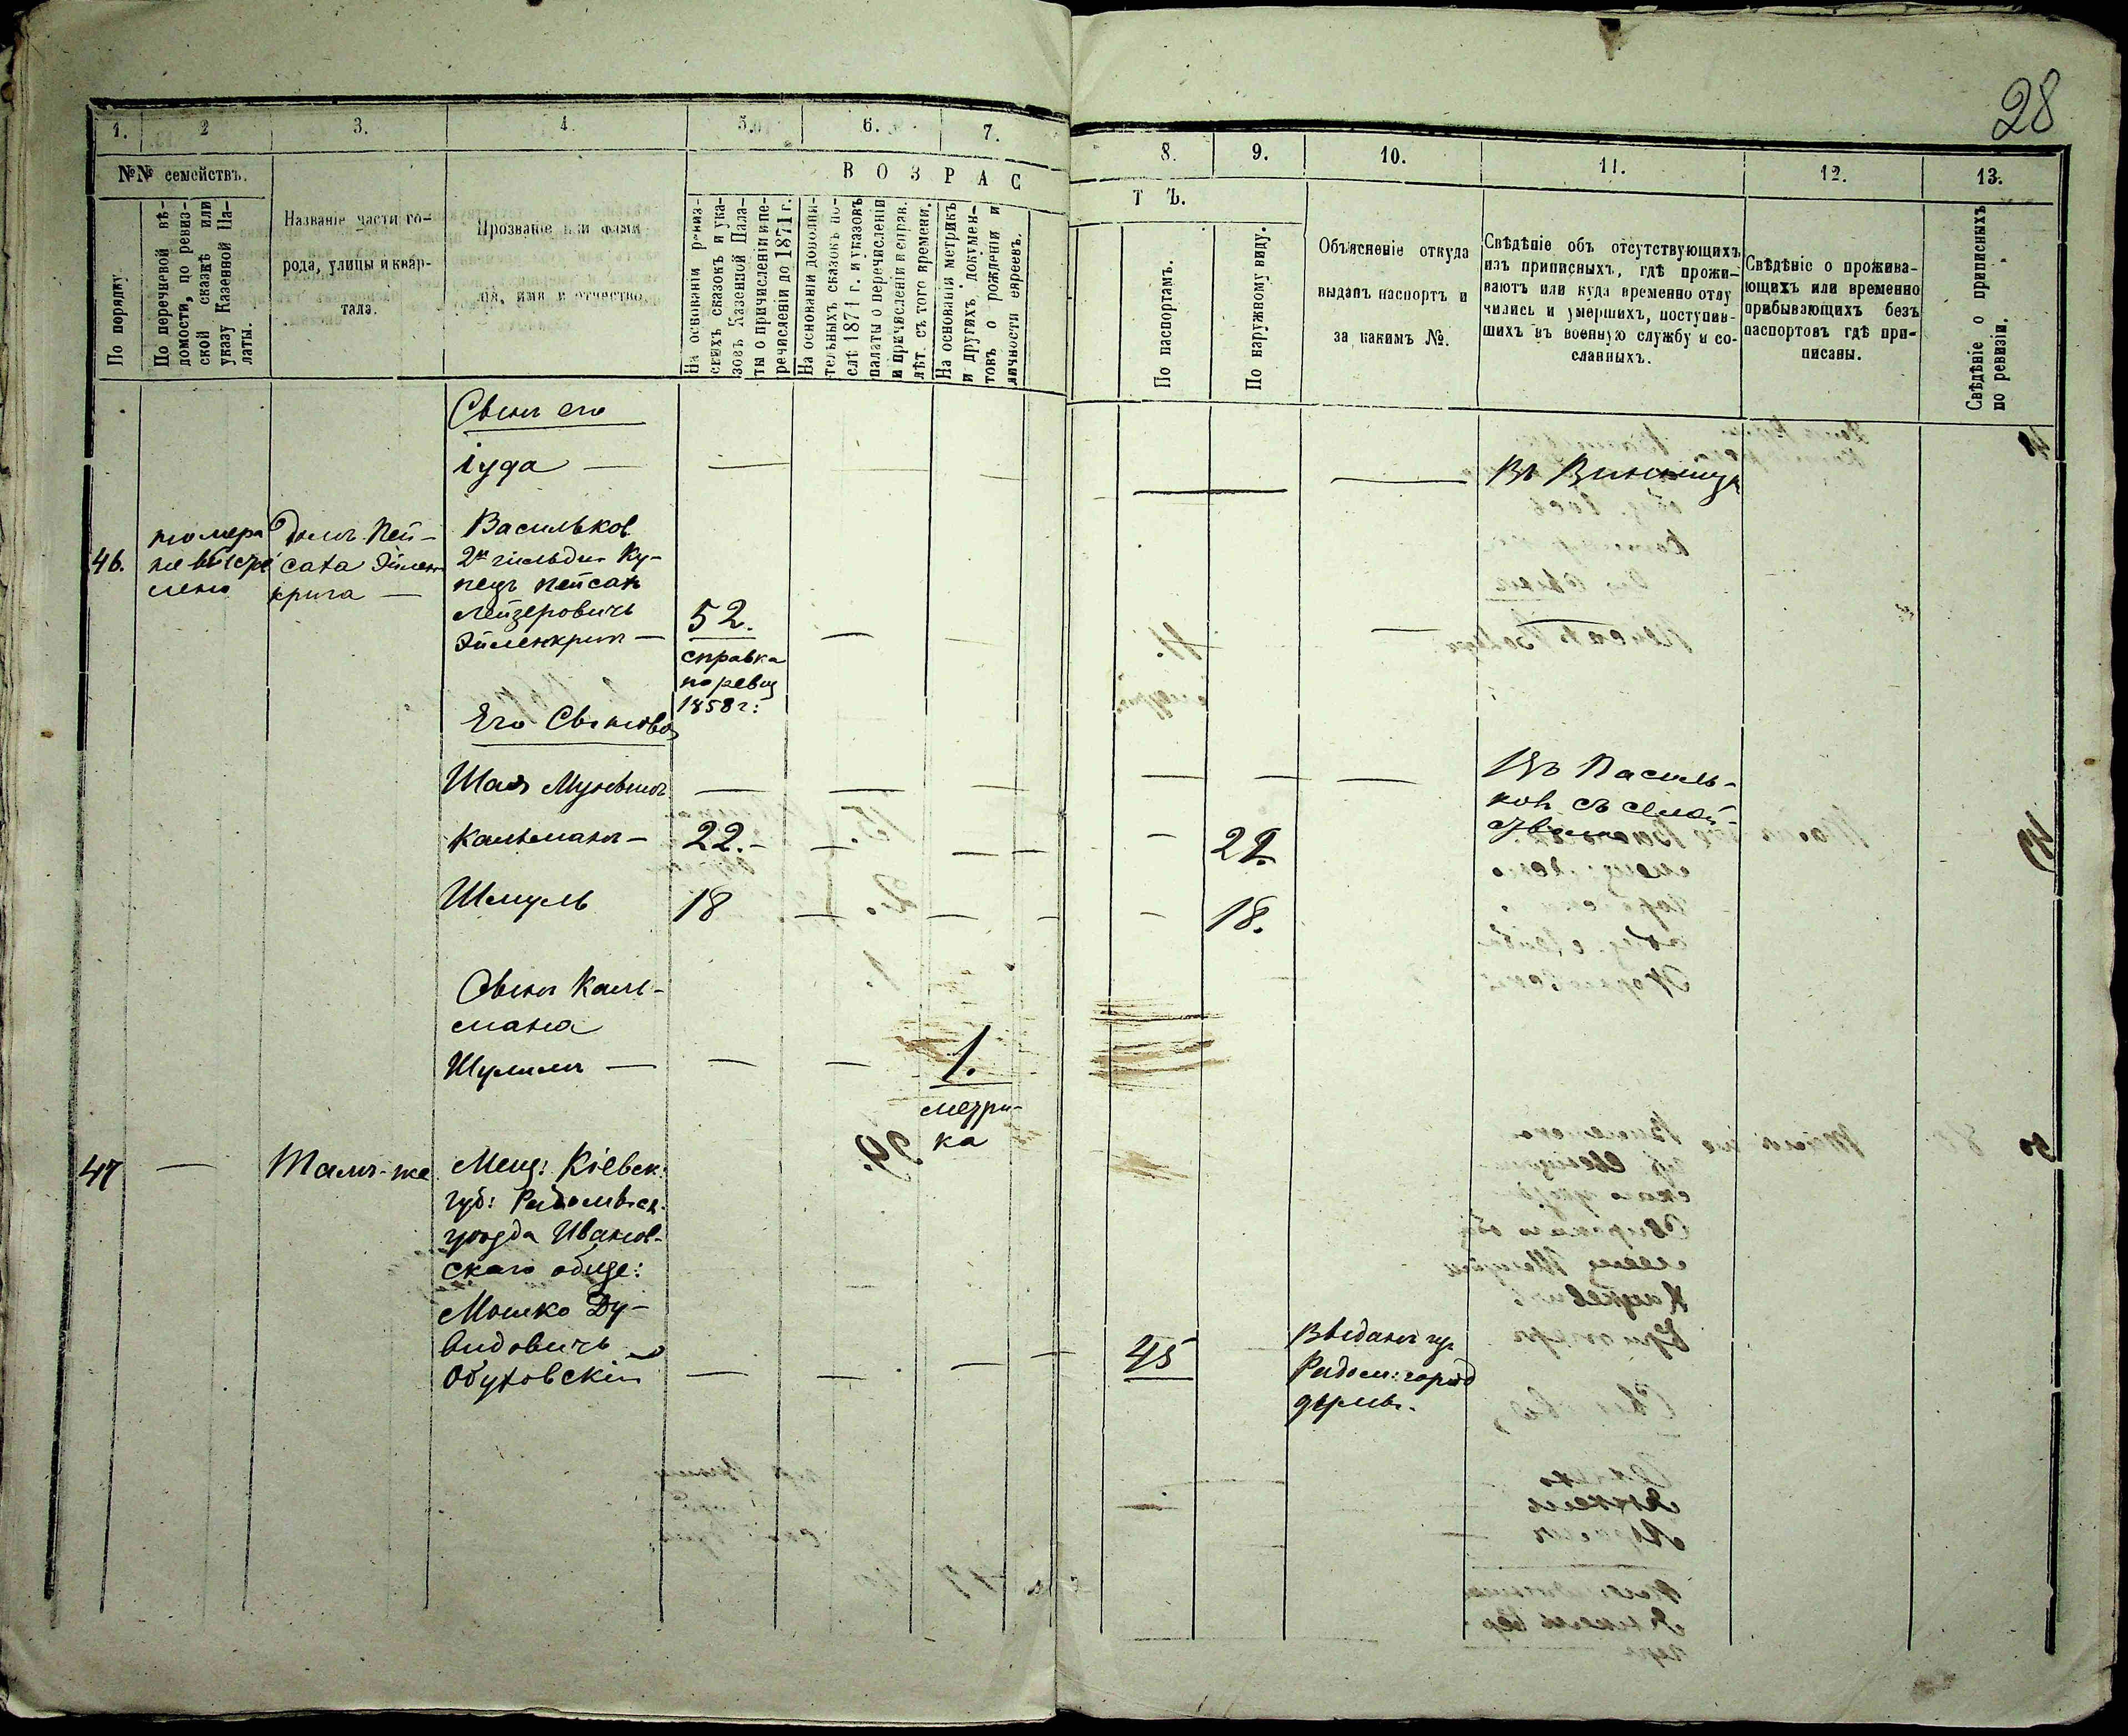 28
1. 2 3. 4. 5. 6. 7.
8. 9. 10. 11. 12. 13.
№№ семействъ.
По порядку
По перечневой вѣ-
домости, по ревиз-
ской сказкѣ или
указу Казенной Па-
латы.
Названіе части го-
рода, улицы и квар-
тала.
Прозваніе или фами-
лія, имя и отчество
ВОЗРАС
ТЪ.
На основаніи ревиз-
скихъ сказокъ и ука-
зовъ Казенной Пала-
ты о причисленіи и пе-
речисленіи до 1871 г.
На основаніи дополни-
тельныхъ сказокъ по-
слѣ 1871 г. и указовъ
палаты о перечисленіи
и причисленіи и справ.
лѣт. съ того времени.
На основаніи метрикъ
и другихъ докумен-
товъ о рожденіи и
личности евреевъ.
По паспортамъ.
По наружному виду.
Объясненіе откуда
выданъ паспортъ и
за какимъ №.
Свѣдѣніе объ отсутствующихъ
изъ приписныхъ, гдѣ прожи-
ваютъ или куда временно отлу
чились и умершихъ, поступив-
шихъ въ военную службу и со-
сланныхъ.
Свѣдѣніе о прожива-
ющихъ или временно
прибывающихъ безъ
паспортовъ гдѣ при-
писаны.
Свѣдѣніе о приписныхъ
по ревизіи.
Сынъ его
Іуда —
Въ
46.
номера
не
Домъ Пей-
сата
крига —
Васильков
2й гильдіи Ку-
пецъ Пейсах
Лейзеровичъ
Эйленкриг —
52.
справка
по ревиз
1858 г:
Его Сыновья
Шая
Въ Василь-
ков съ семей-
ствомъ
Кальманъ — 22. — 22.
Шмуль 18 — 18.
Сынъ Каль-
мана
Шулимъ — 1.
метри-
ка
47 — Тамъ-же
Мещ: Кіевск:
губ: Радомысл.
уѣзда Иванов-
скаго обще:
Мошко Ду-
видовичъ
Обуховскій — 45
Выданъ
Радом: город
думы.